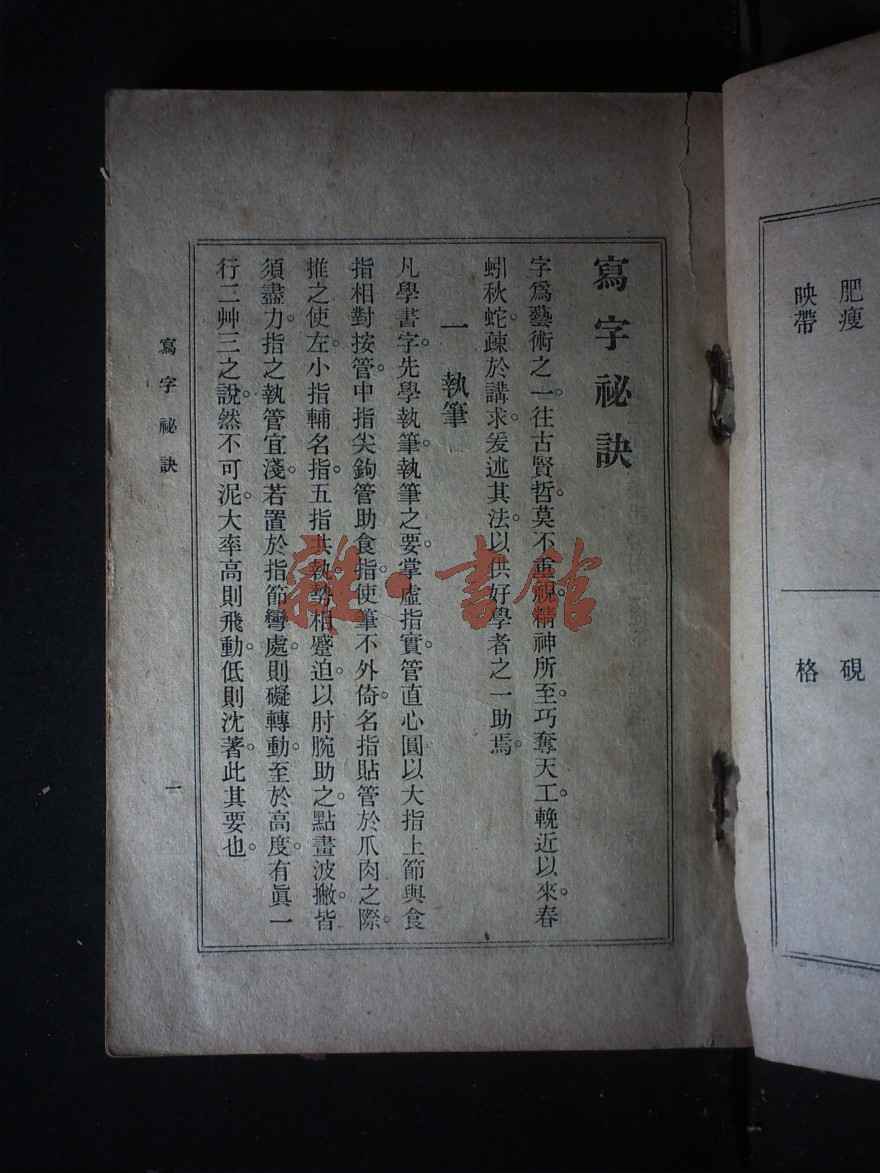 肥瘦
硯
映帶
格
寫字祕訣
字爲藝術之一。往古賢哲。莫不重視。精神所至。巧奪天工。輓近以來。春
蚓秋蛇。疎於講求。爰述其法。以供好學者之一助焉。
一 執筆
凡學書字。先學執筆。執筆之要。掌虛指實。管直心圓。以大指上節與食
指相對按管。中指尖鉤管助食指。使筆不外倚。名指貼管於爪肉之際。
推之使左。小指輔名指。五指共執。勢相蹙迫。以肘腕助之。點畫波撇。皆
須盡力。指之執管宜淺。若置於指節彎處。則礙轉動。至於高度。有眞一
行二艸三之說。然不可泥。大率高則飛動。低則沈著。此其要也。
寫字祕訣
一
雜·書館